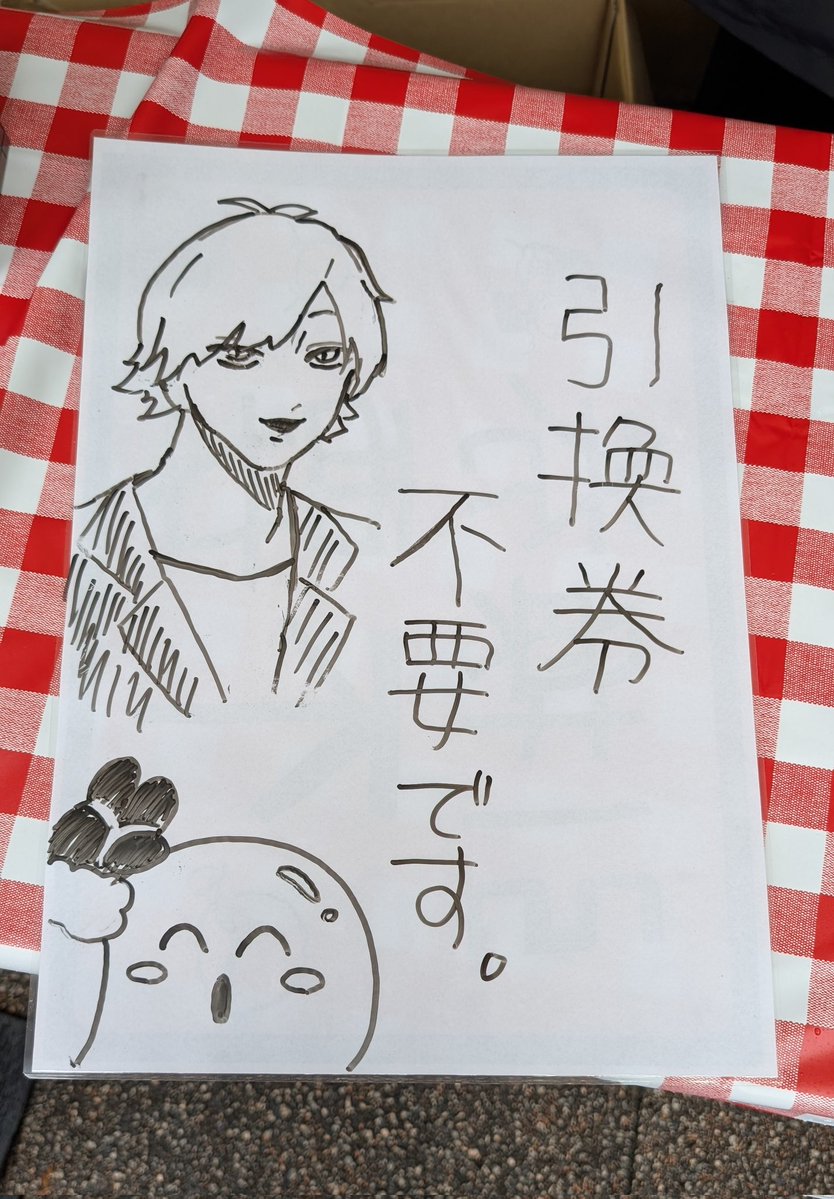 引換券
不要です。